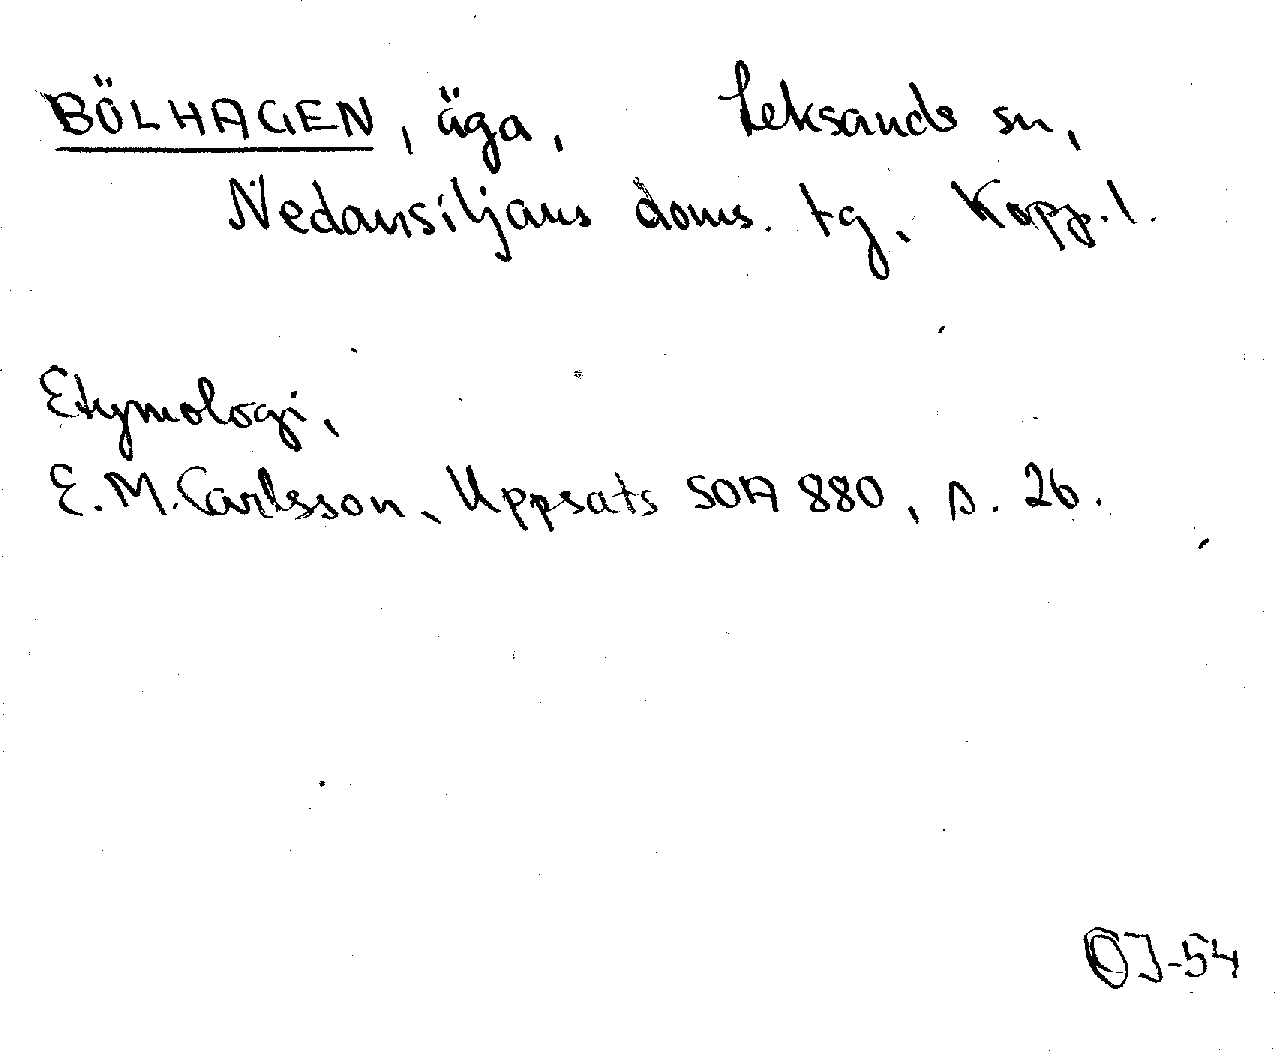 BÖLHAGEN, äga, Leksands sn,
Nedansiljans doms. tg, Kopp. l.
Etymologi,
E. M. Carlsson, Uppsats SOA 880, s. 26.
OJ-54